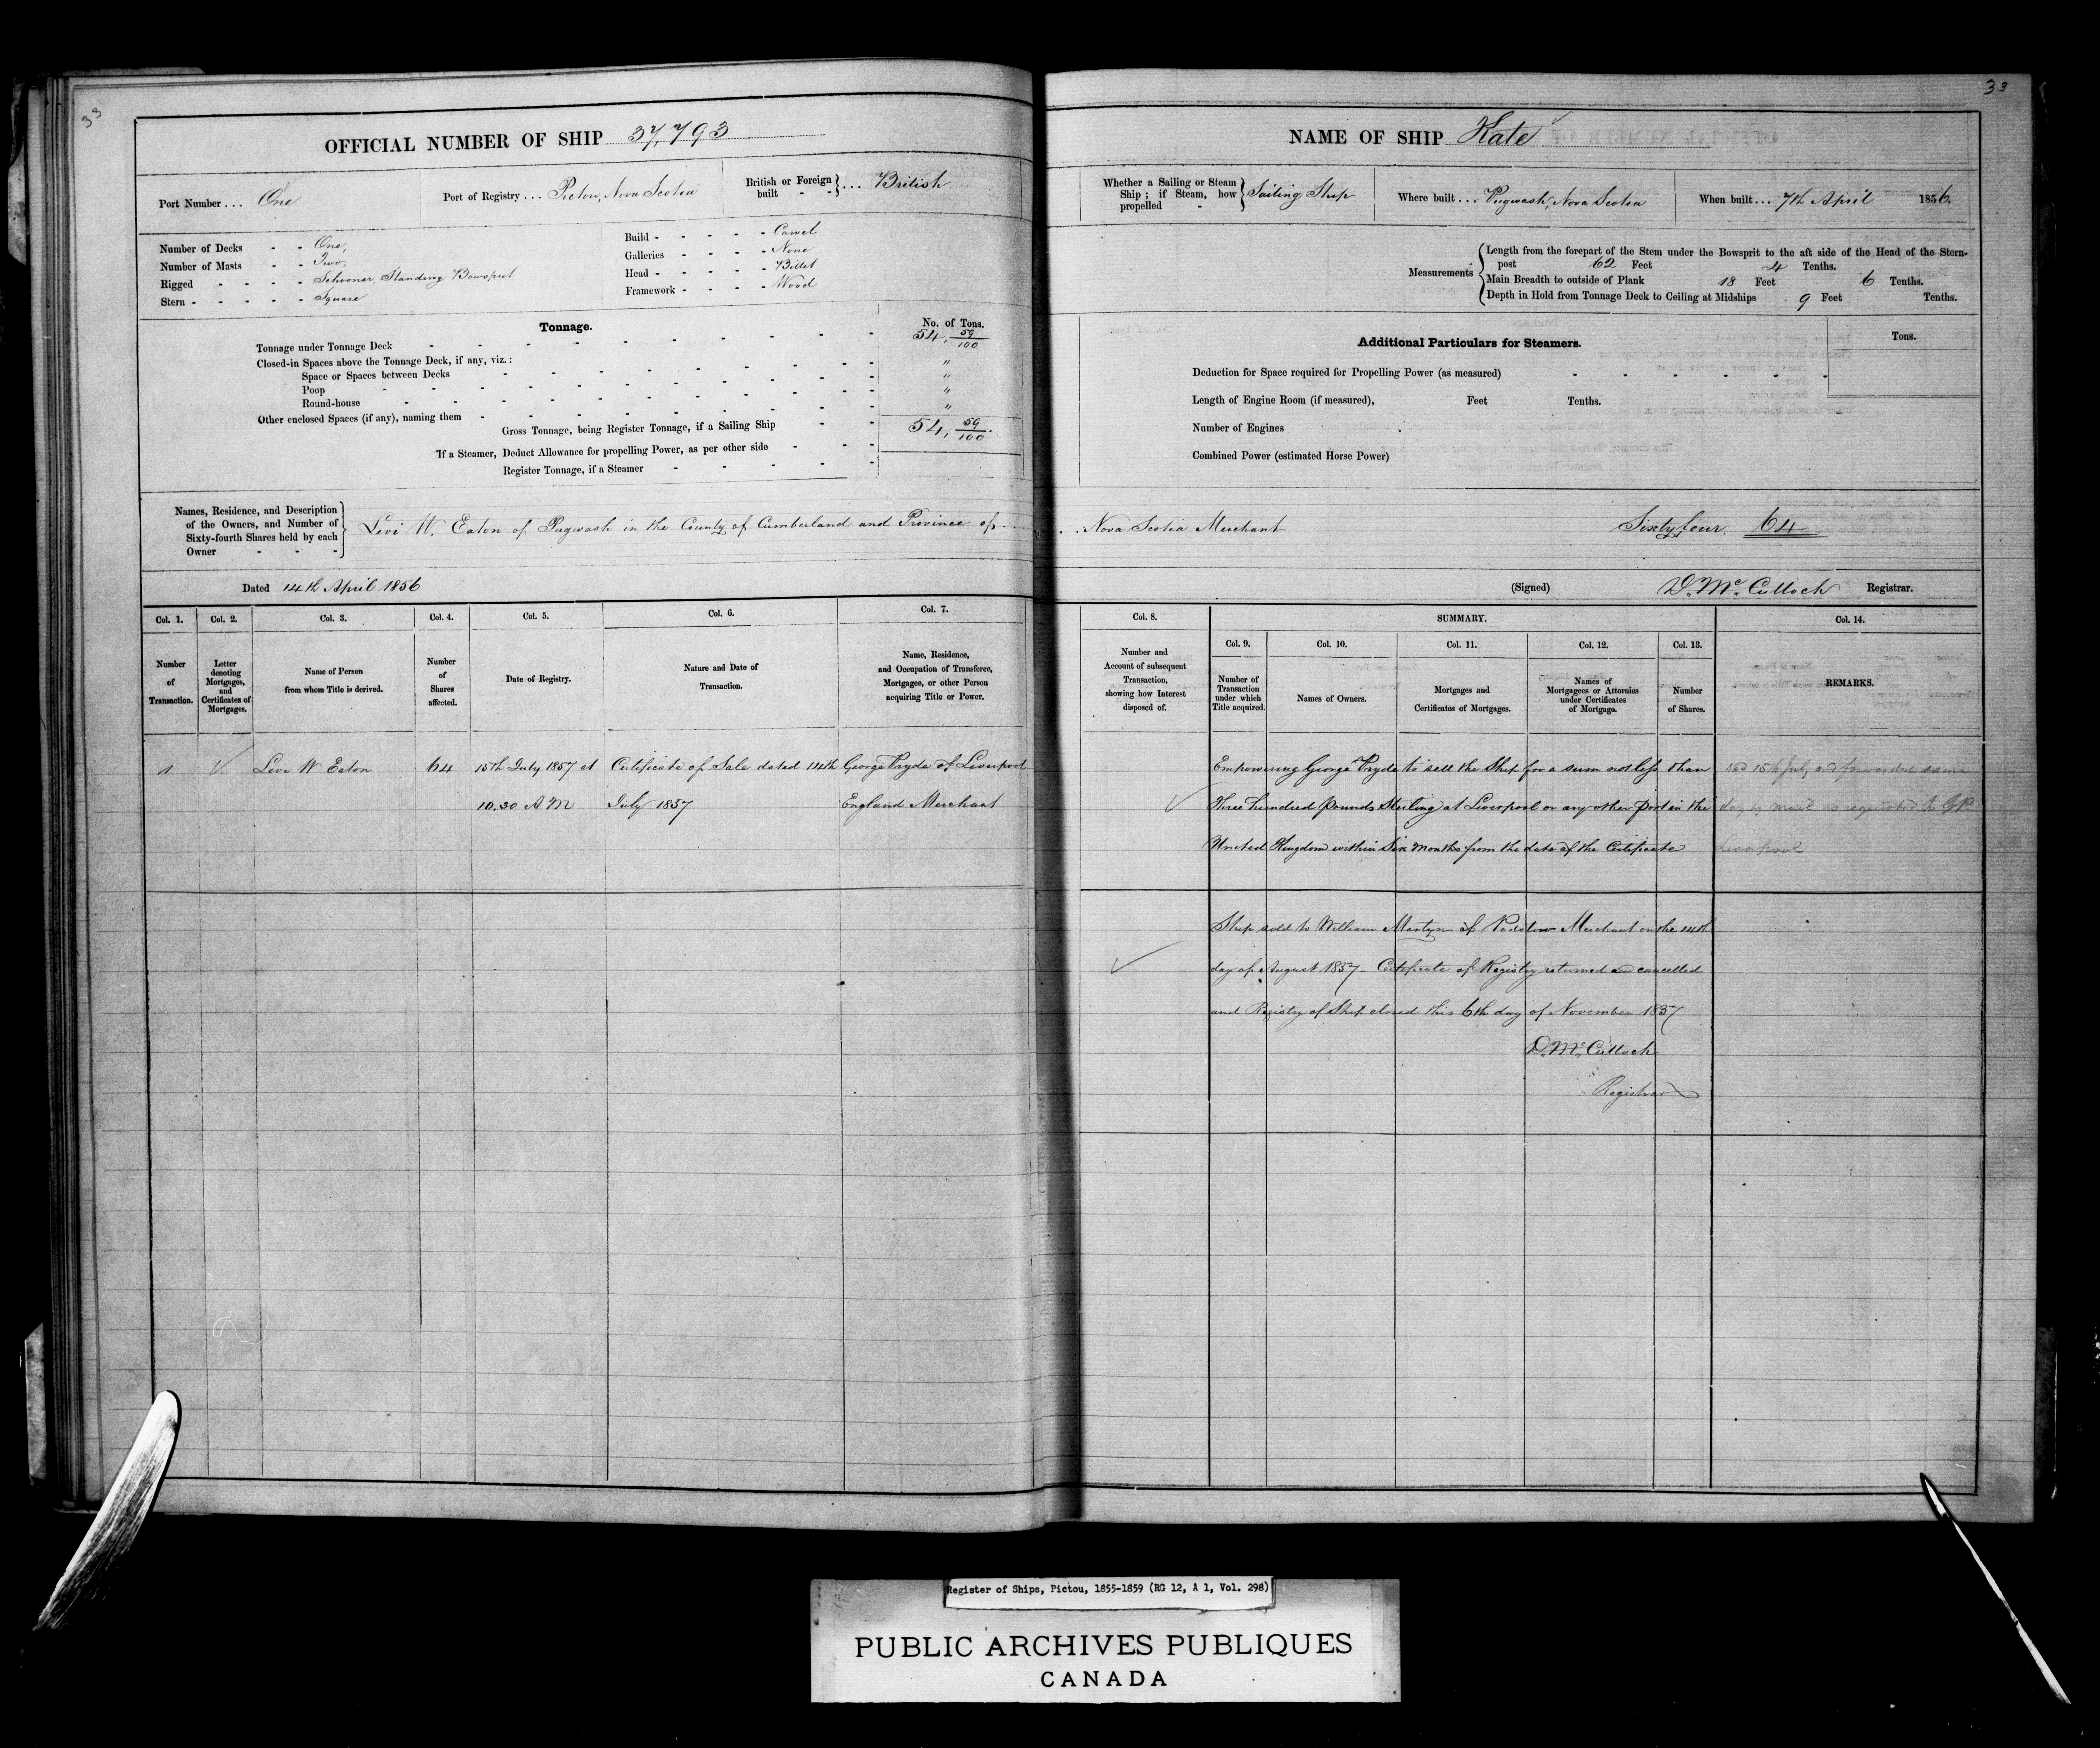 33
OFFICIAL NUMBER OF SHIP 37,793
Port Number . . . One
Port of Registry . . . Pictou, Nova Scotia
British or Foreign built - } . . . British
Number of Decks - - One,
Number of Masts - - Two,
Rigged - - - - Schooner, Standing Bowsprit
Stern - - - - - Square
Build - - - - - Carvel
Galleries - - - - None
Head - - - - - Billet
Framework - - - - Wood
Tonnage.
No. of Tons.
Tonnage under Tonnage Deck 54, 59/100
Closed-in Spaces above the Tonnage Deck, if any, viz.: "
Space or Spaces between Decks "
Poop "
Round-house "
Other enclosed Spaces (if any), naming them
Gross Tonnage, being Register Tonnage, if a Sailing Ship 54, 59/100.
If a Steamer, Deduct Allowance for propelling Power, as per other side
Register Tonnage, if a Steamer
Names, Residence, and Description
of the Owners, and Number of
Sixty-fourth Shares held by each
Owner - - -
Levi W. Eaton of Pugwash in the County of Cumberland and Province of
Dated 14th April 1856
Col. 1.
Number of Transaction.
Col. 2.
Letter denoting Mortgages, and Certificates of Mortgages.
Col. 3.
Name of Person from whom Title is derived.
Col. 4.
Number of Shares affected.
Col. 5.
Date of Registry.
Col. 6.
Nature and Date of Transaction.
Col. 7.
Name, Residence, and Occupation of Transferee, Mortgagee, or other Person acquiring Title or Power.
1 Levi W Eaton 64 15th July 1857 at Certificate of Sale dated 14th George Pryde of Liverpool
10.30 A M July 1857 England Merchant
33
NAME OF SHIP Kate
Whether a Sailing or Steam Ship; if Steam, how propelled - } Sailing Ship
Where built . . . Pugwash, Nova Scotia
When built . . . 7th April 1856.
Measurements
Length from the forepart of the Stem under the Bowsprit to the aft side of the Head of the Stern-
post 62 Feet 4 Tenths.
Main Breadth to outside of Plank 18 Feet 6 Tenths.
Depth in Hold from Tonnage Deck to Ceiling at Midships 9 Feet Tenths.
Additional Particulars for Steamers.
Tons.
Deduction for Space required for Propelling Power (as measured)
Length of Engine Room (if measured), Feet Tenths.
Number of Engines
Combined Power (estimated Horse Power)
Nova Scotia Merchant Sixty four. 64
(Signed) D. McCulloch Registrar.
Col. 8.
Number and Account of subsequent Transaction, showing how Interest disposed of.
SUMMARY.
Col. 9.
Number of Transaction under which Title acquired.
Col. 10.
Names of Owners.
Col. 11.
Mortgages and Certificates of Mortgages.
Col. 12.
Names of Mortgagees or Attornies under Certificates of Mortgage.
Col. 13.
Number of Shares.
Col. 14.
REMARKS.
Empowering George Pryde to sell the Ship for a sum not less than
Three hundred pounds Sterling at Liverpool or any other port in the
United Kingdom within Six Months from the date of the Certificate
15th July and forwarded same
day by mail as registered to G P
Liverpool
Ship sold to William Martyn of Padstow Merchant on the 14th
day of August 1857 - Certificate of Registry returned and cancelled
and Registry of Ship closed this 6th day of November 1857
D. McCulloch
Registrar
Register of Ships, Pictou, 1855-1859 (RG 12, A 1, Vol. 298)
PUBLIC ARCHIVES PUBLIQUES
CANADA